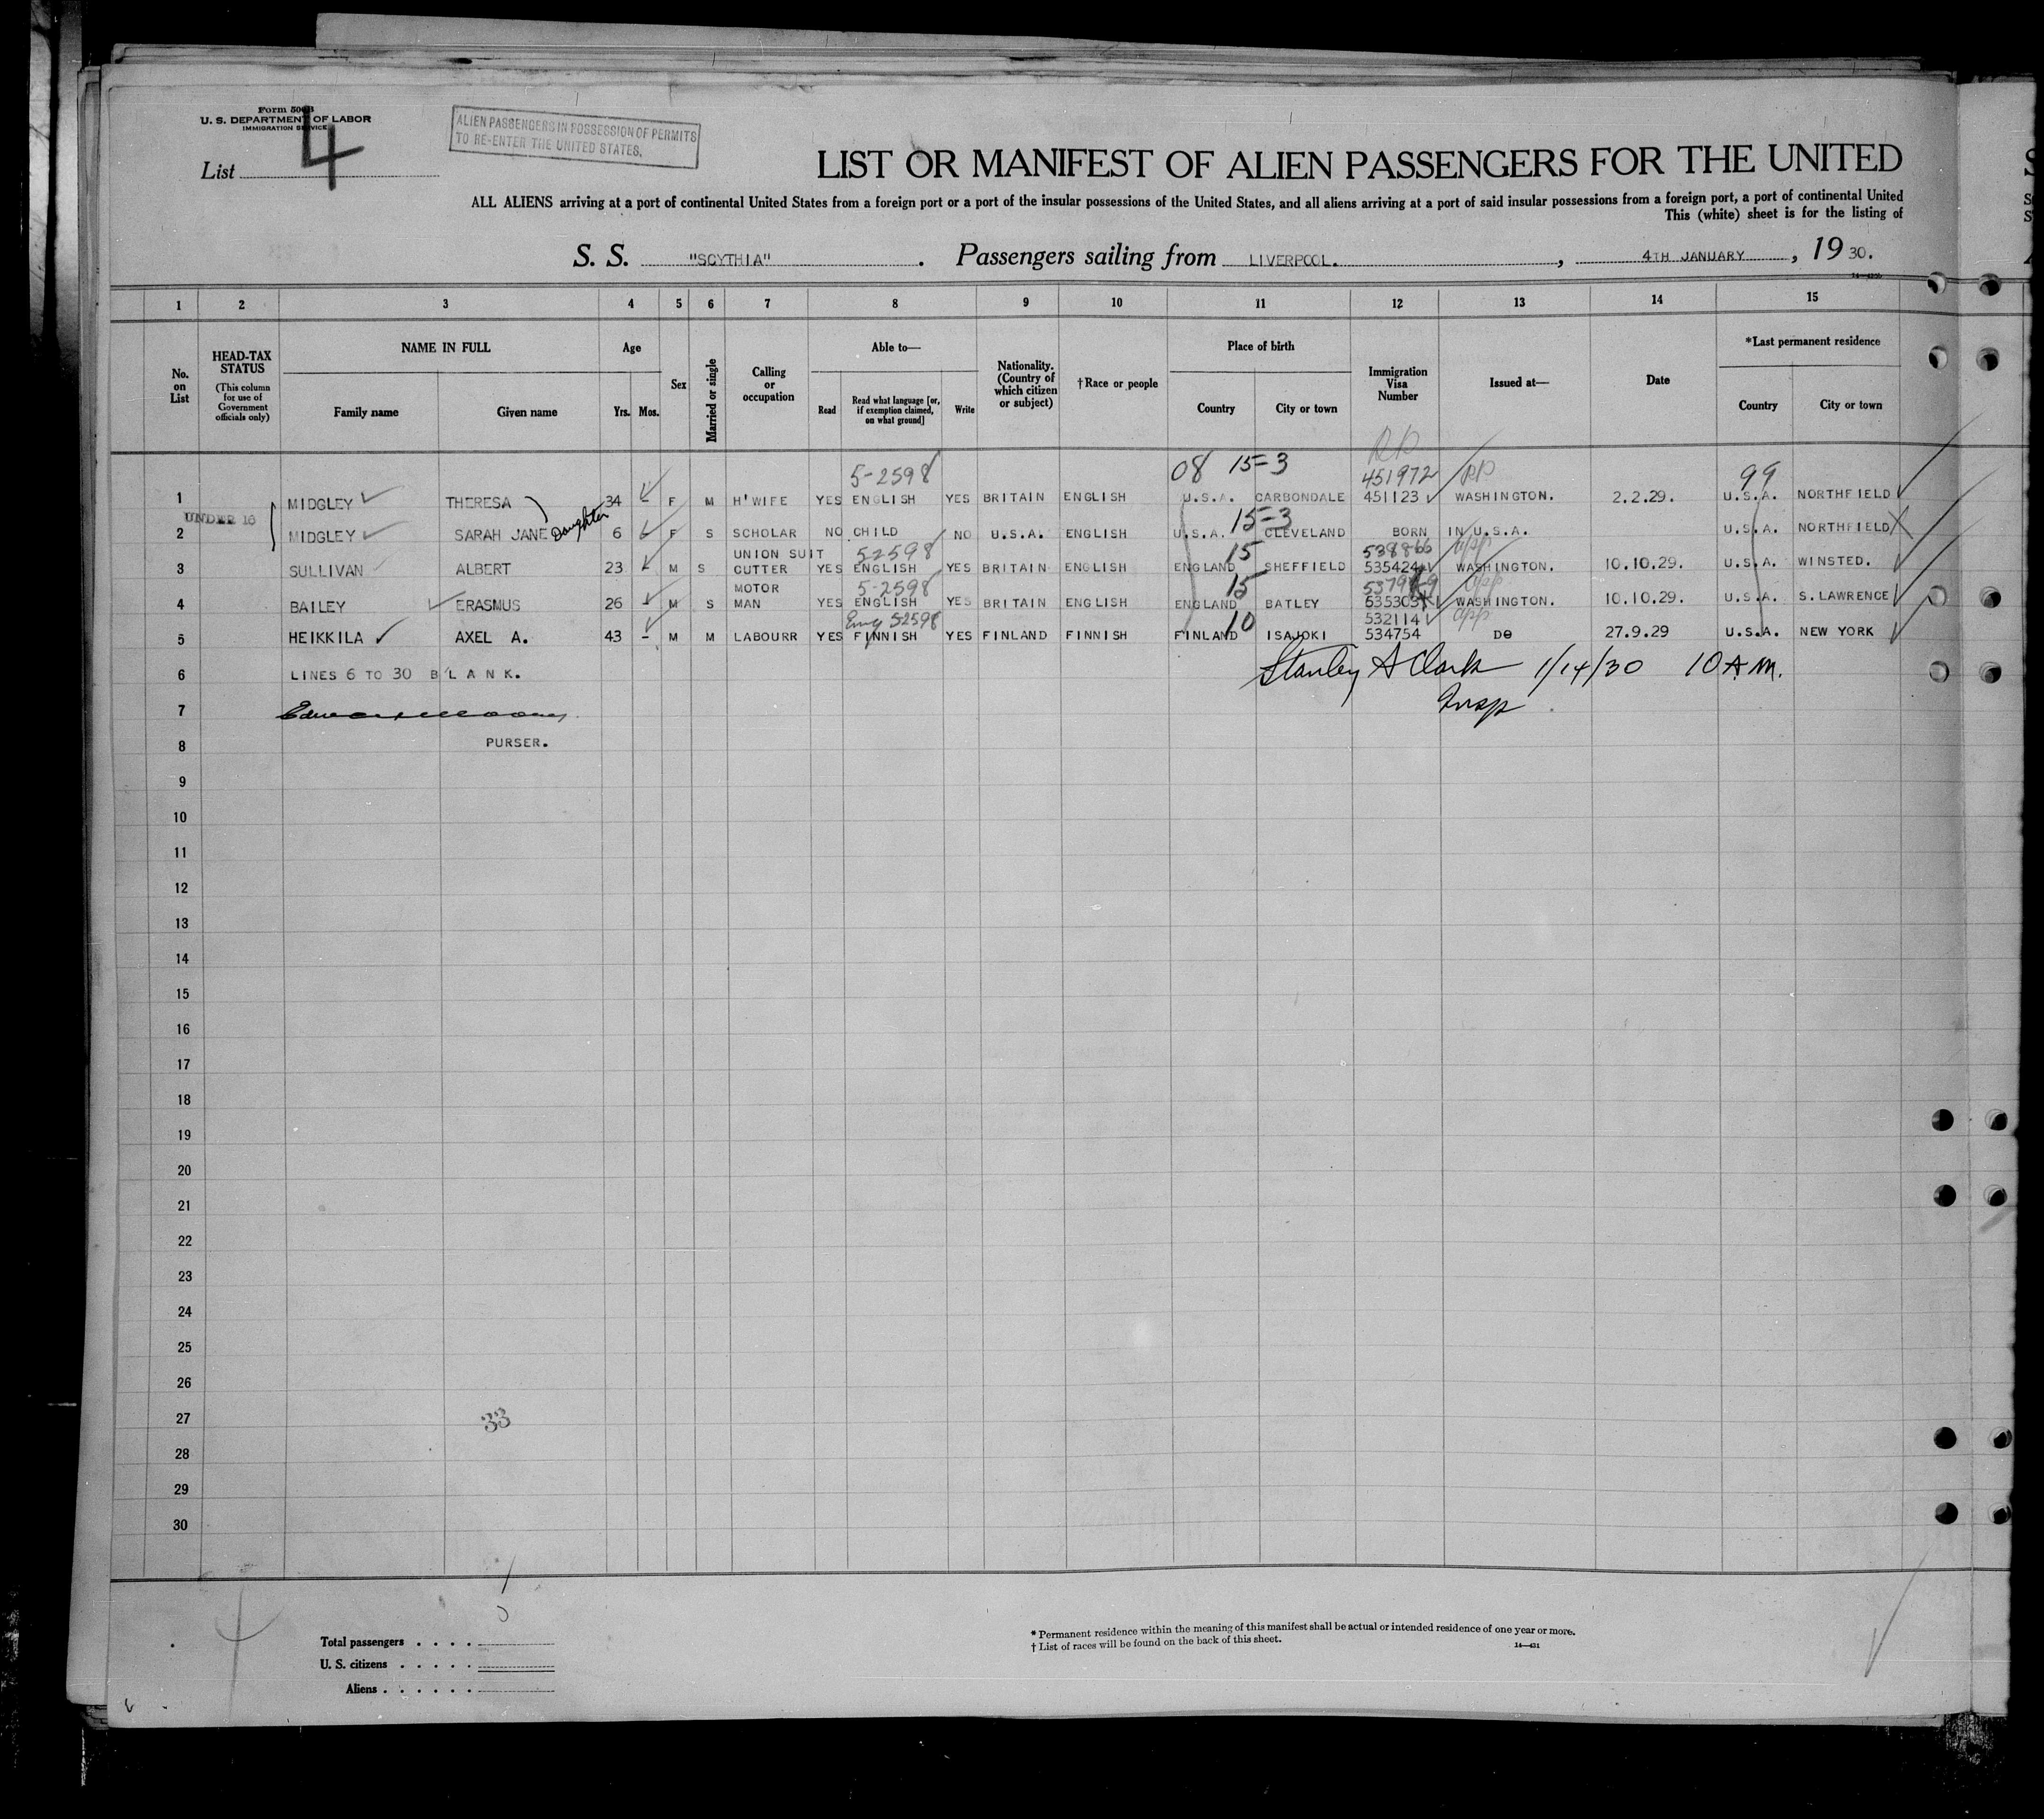 Form 500 B
U. S. DEPARTMENT OF LABOR
IMMIGRATION SERVICE
List 4
ALIEN PASSENGERS IN POSSESSION OF PERMITS
TO RE-ENTER THE UNITED STATES.
LIST OR MANIFEST OF ALIEN PASSENGERS FOR THE UNITED
ALL ALIENS arriving at a port of continental United States from a foreign port or a port of the insular possessions of the United States, and all aliens arriving at a port of said insular possessions from a foreign port, a port of continental United
This (white) sheet is for the listing of
S. S. "SCYTHIA". Passengers sailing from LIVERPOOL., 4TH JANUARY, 1930.
1 2 3 4 5 6 7 8 9 10 11 12 13 14 15
No. on List
HEAD-TAX STATUS (This column for use of Government officials only)
NAME IN FULL
Family name Given name
Age
Yrs. Mos.
Sex
Married or single
Calling or occupation
Able to—
Read Read what language [or, if exemption claimed, on what ground] Write
Nationality. (Country of which citizen or subject)
†Race or people
Place of birth
Country City or town
Immigration Visa Number
Issued at—
Date
*Last permanent residence
Country City or town
5-2598 08 15-3 451972 RP 99
1 MIDGLEY THERESA 34 - F M H'WIFE YES ENGLISH YES BRITAIN ENGLISH U.S.A. CARBONDALE 451123 WASHINGTON. 2.2.29. U.S.A. NORTHFIELD
UNDER 16 Daughter 15-3
2 MIDGLEY SARAH JANE 6 - F S SCHOLAR NO CHILD NO U.S.A. ENGLISH U.S.A. CLEVELAND BORN IN U.S.A. U.S.A. NORTHFIELD
UNION SUIT 52598 15 538866
3 SULLIVAN ALBERT 23 - M S CUTTER YES ENGLISH YES BRITAIN ENGLISH ENGLAND SHEFFIELD 535424 WASHINGTON. 10.10.29. U.S.A. WINSTED.
MOTOR 5-2598 15
4 BAILEY ERASMUS 26 - M S MAN YES ENGLISH YES BRITAIN ENGLISH ENGLAND BATLEY WASHINGTON. 10.10.29. U.S.A. S. LAWRENCE
52598 10 532114
5 HEIKKILA AXEL A. 43 - M M LABOURR YES FINNISH YES FINLAND FINNISH FINLAND ISAJOKI 534754 DO 27.9.29 U.S.A. NEW YORK
6 LINES 6 TO 30 BLANK. Stanley A Clark 1/14/30 10 A.M.
7 Insp
8 PURSER.
9
10
11
12
13
14
15
16
17
18
19
20
21
22
23
24
25
26
27 33
28
29
30
Total passengers
U. S. citizens
Aliens
* Permanent residence within the meaning of this manifest shall be actual or intended residence of one year or more.
† List of races will be found on the back of this sheet.
14—431